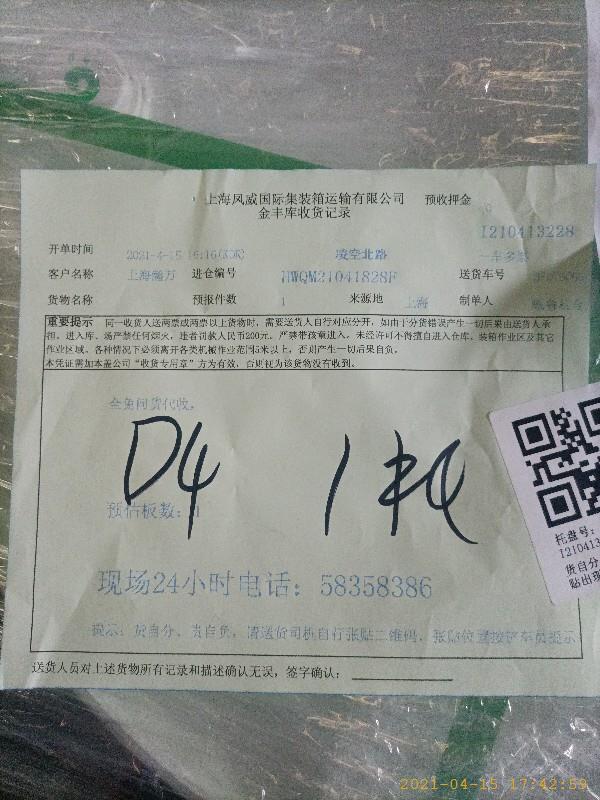 上海凤威国际集装箱运输有限公司 预收押金 0
金丰库收货记录
I210413228
开单时间 2021-4-15 16:16 凌空北路 一车多票
客户名称 进仓编号 HWQM21041828F 送货车号
货物名称 预报件数 1 来源地 上海 制单人
重要提示 同一收货人送两票或两票以上货物时,需要送货人自行对应分开,如由于分货错误产生一切后果由送货人承
担,进入库、场严禁任何烟火,违者罚款人民币200元。严禁带孩童进入。未经许可不得擅自进入仓库、装箱作业区及其它
作业区域。各种情况下必须离开各类机械作业范围5米以上,否则产生一切后果自负。
本凭证需加本盖公司“收货专用章”方为有效,否则视为该货物没有收到。
D4 1
预估板数:1
现场24小时电话:58358386
提示:货自分、责自负,请送货司机自行张贴二维码,张贴位置按铲车员提示
送货人员对上述货物所有记录和描述确认无误,签字确认:
托盘号:
I210413
货自分
贴出现
2021-04-15 17:42:59